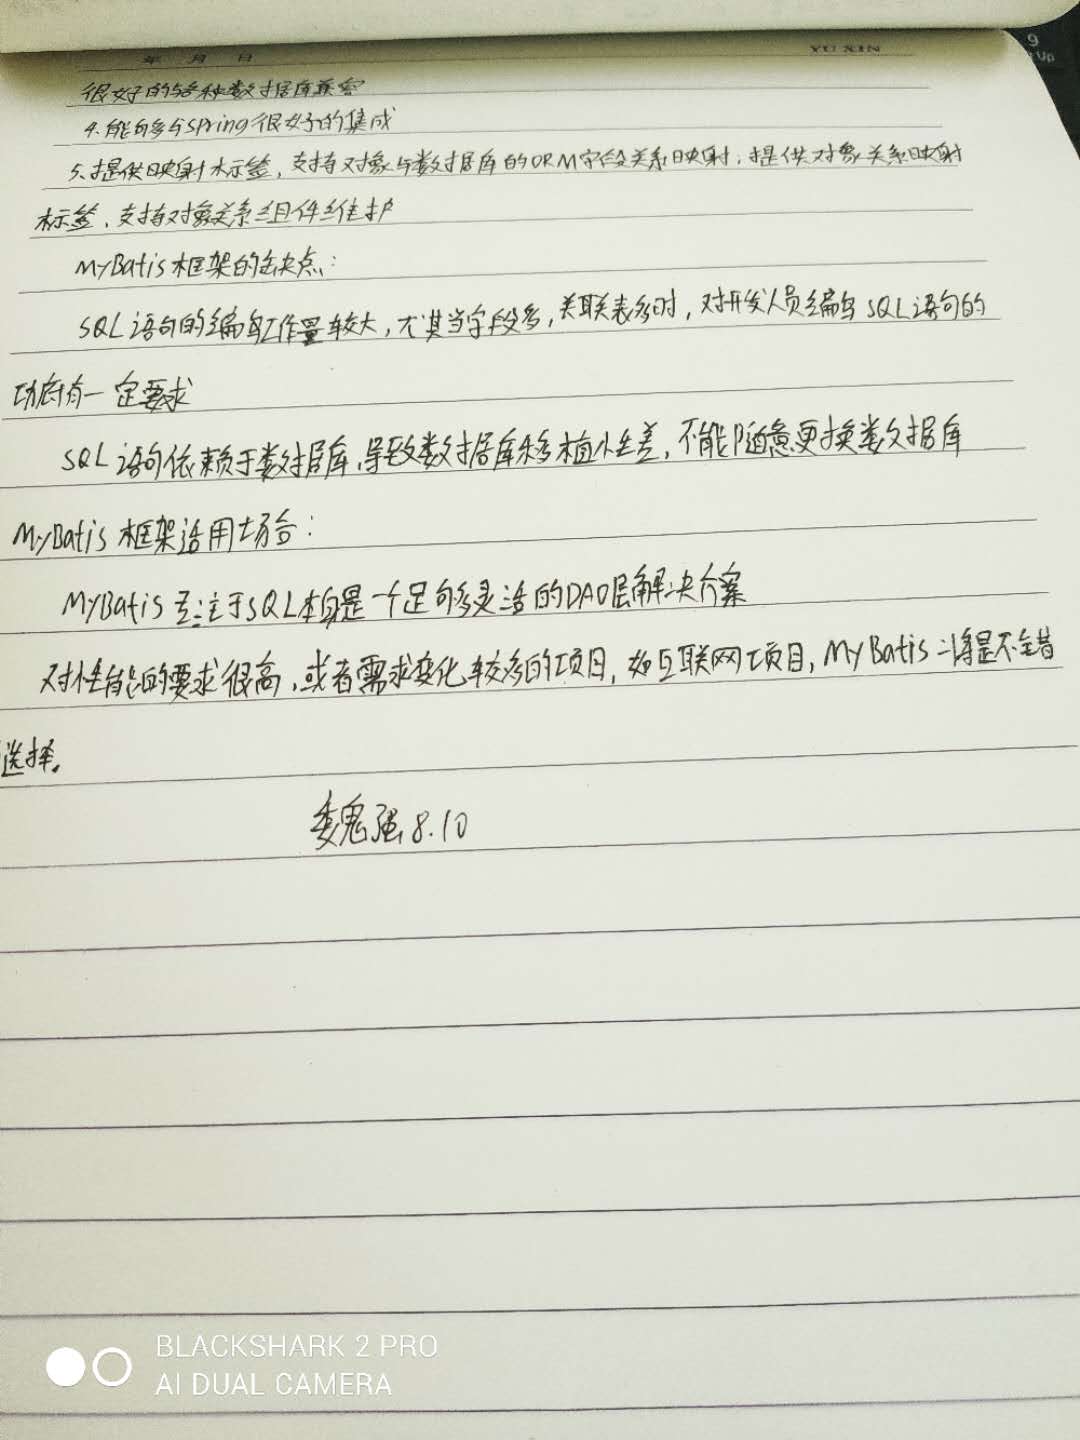 年 月 日
YU XIN
9
Up
很好的与各种数据库兼容
4.能够与Spring很好的集成
5.提供映射标签,支持对象与数据库的ORM字段关系映射;提供对象关系映射
标签,支持对象关系组件维护
MyBatis框架的缺点:
SQL语句的编写工作量较大,尤其当字段多,关联表多时,对开发人员编写SQL语句的
功底有一定要求
SQL语句依赖于数据库,导致数据库移植性差,不能随意更换数据库
MyBatis框架适用场合:
MyBatis专注于SQL本身是一个足够灵活的DAO层解决方案
对性能的要求很高,或者需求变化较多的项目,如互联网项目,MyBatis将是不错
选择。
魏强8.10
BLACKSHARK 2 PRO
AI DUAL CAMERA